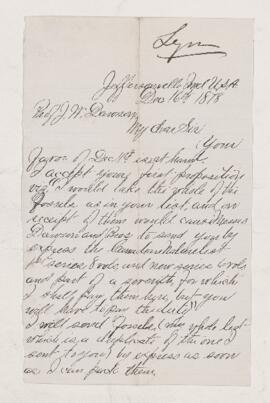 Lyn
Jeffersonville Ind U.S.A
Dec 16th 1878
Prof J. W. Dawson
My Dear Sir
Your
favor of Dec 11th is at hand.
I accept your first proposition
viz I would take the whole of the
fossils as in your list, and on
receipt of them would cause Messrs
Dawson and Bros to send you by
express the Canadian Naturalist
1st series 8 vols and new series 6 vols
and part of a seventh for which
I shall pay them here, but you
will have to pay the duty"
I will send fossils (my whole list
which is a duplicate of the one I
sent to you) by express as soon
as I can pack them.